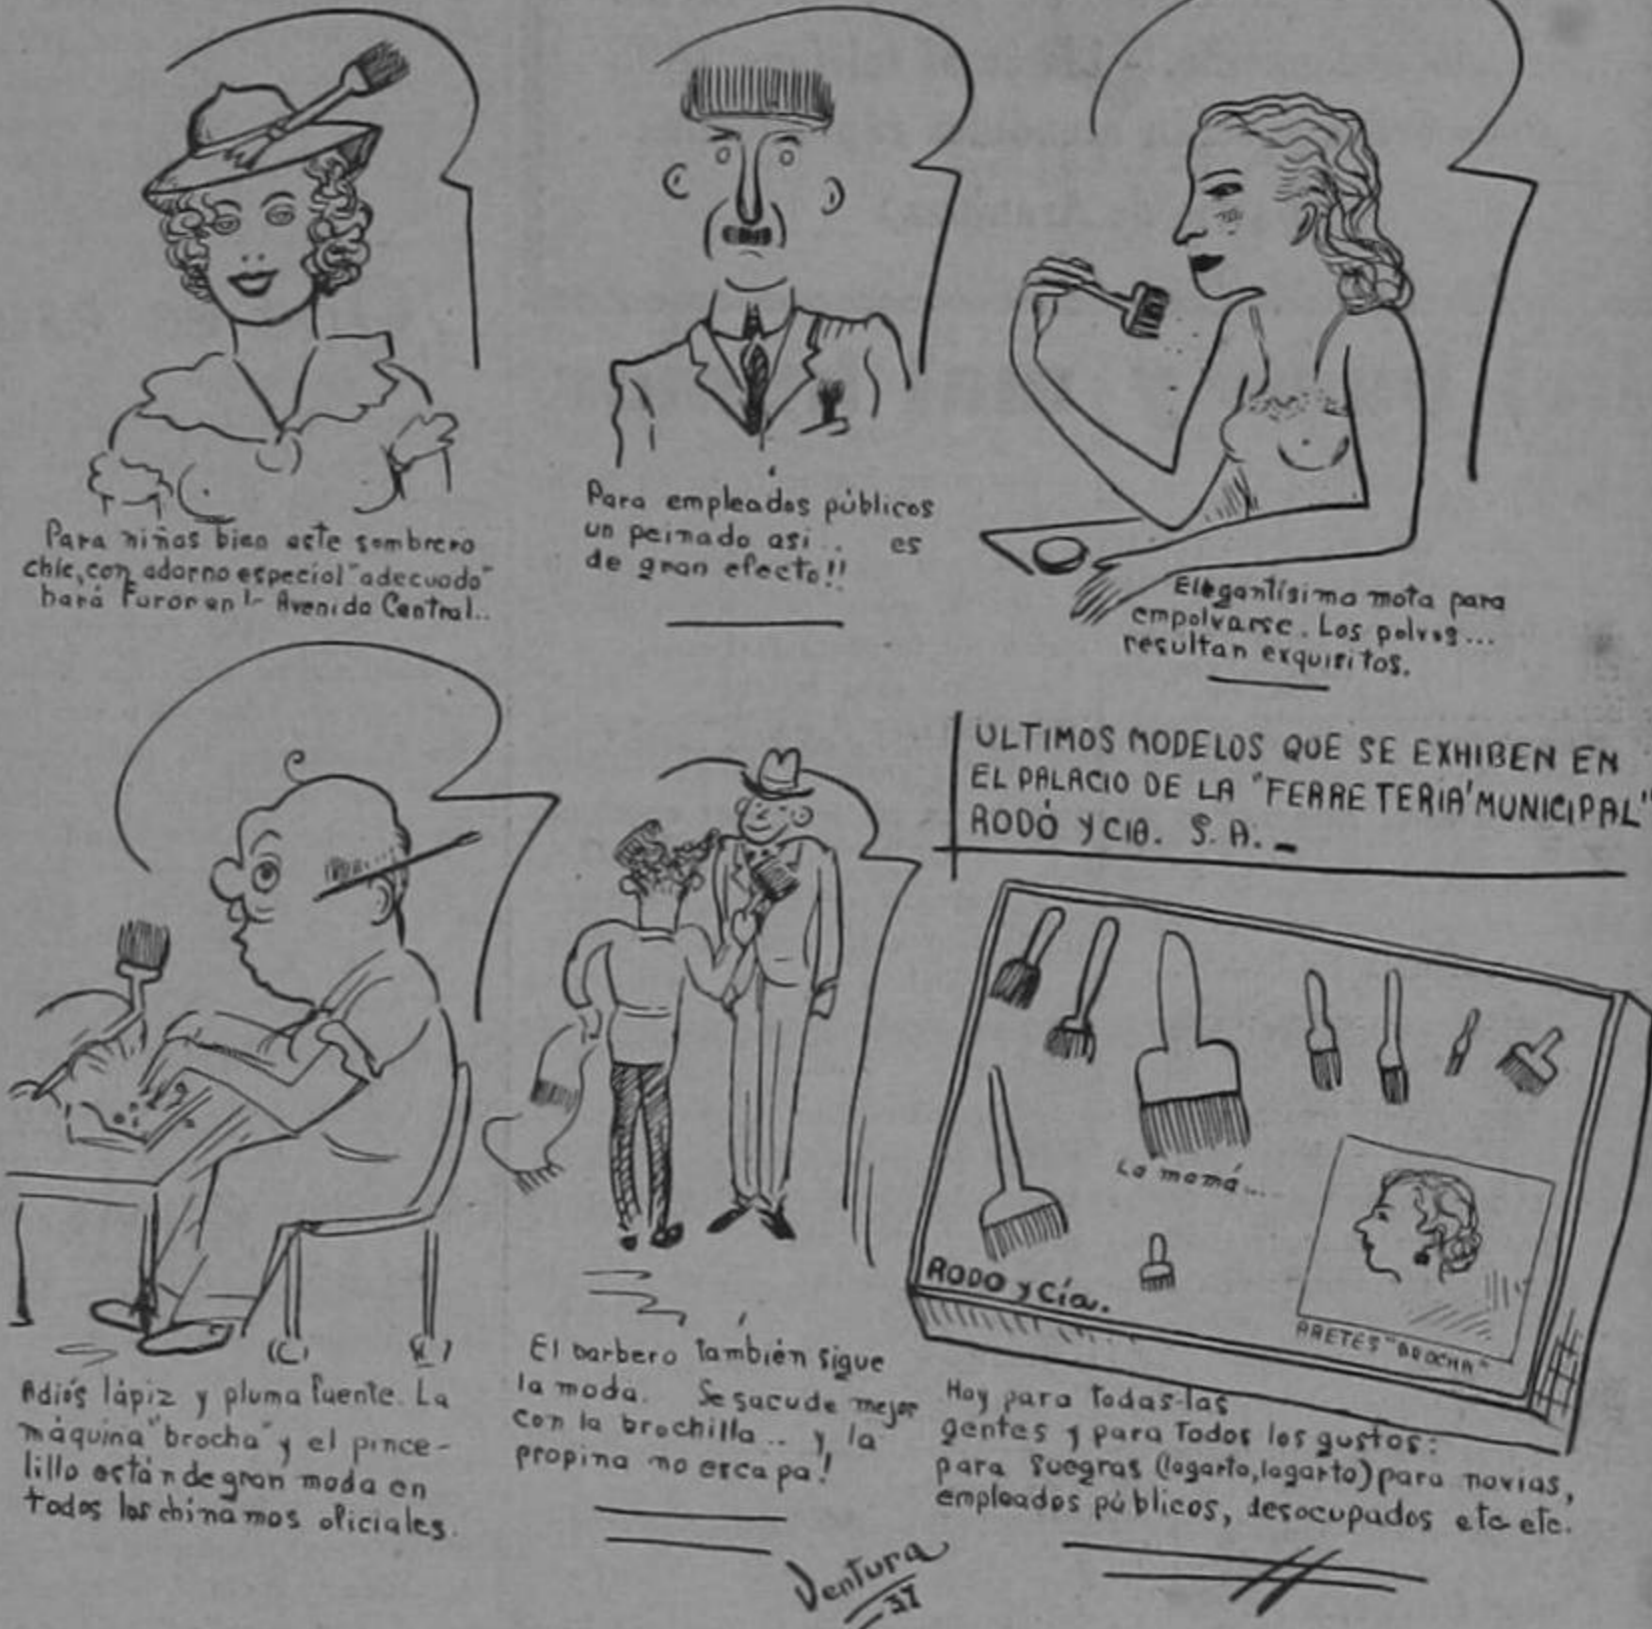 Para niñas bien este sombrero
chic, con adorno especial "adecuado"
hará furor en la Avenida Central..
Para empleados públicos
un peinado asi... es
de gran efecto!!
Elegantísima mota para
empolvarse. Los polvos...
resultan exquisitos.
ULTIMOS MODELOS QUE SE EXHIBEN EN
EL PALACIO DE LA "FERRETERIA' MUNICIPAL"
RODÓ Y CIA. S. A. -
La mamá...
RODO y Cía.
ARETES "BROCHA"
Adiós lápiz y pluma fuente. La
máquina "brocha" y el pince-
lillo están de gran moda en
todos los chinamos oficiales.
El barbero también sigue
la moda. Se sacude mejor
con la brochilla.. y la
propina no escapa!
Hay para todas las
gentes y para todos los gustos:
para suegras (lagarto, lagarto) para novias,
empleados públicos, desocupados etc etc.
Ventura
-37